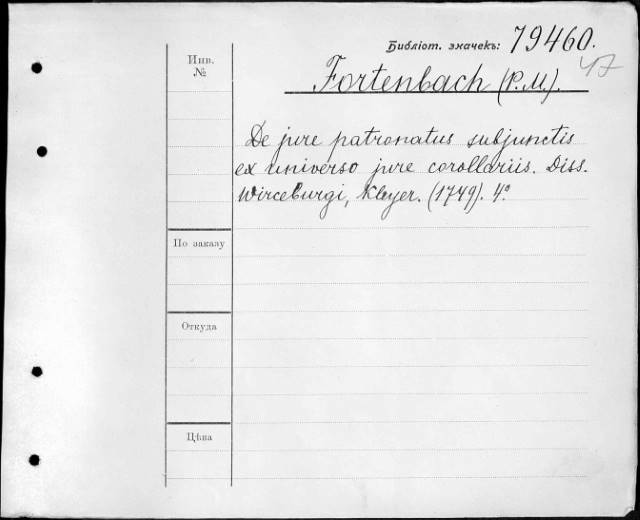 Библіот. значекъ: 79460.
47
Инв.
№
Fortenbach (P. M.).
De jure patronatus subjunctis
ex universo jure corollariis. Diss.
Wirceburgi, Kleyer. (1749). 4°
По заказу
Откуда
Цѣна